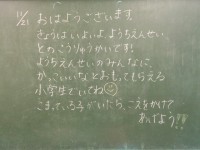 11/21 おはようございます。
きょうは いよいよ、ようちえんせい
との こうりゅうかいです!
ようちえんせいの みんなに、
かっこいいなと おもってもらえる
小学生で いてね
こまっている子が いたら、こえをかけて
あげよう!!